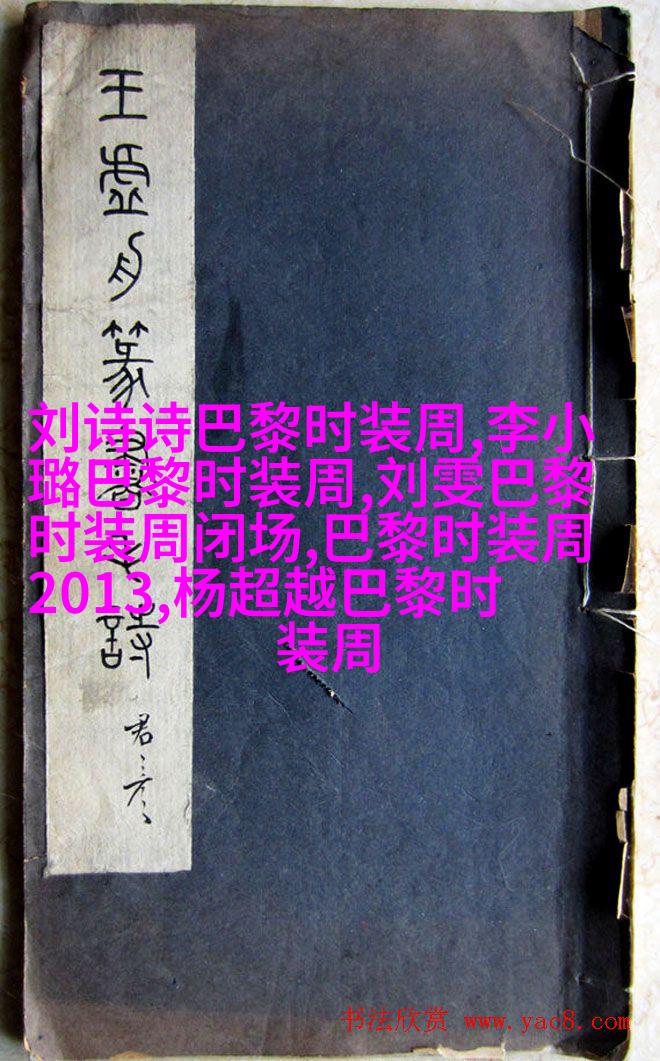 王虛舟篆書詩
刘诗诗巴黎时装周,李小
璐巴黎时装周,刘雯巴黎
时装周闭场,巴黎时装周
2013,杨超越巴黎时
装周
书法欣赏 www.yac8.com